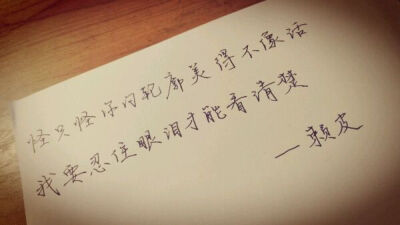 怪只怪你的轮廓美得不像话
我要忍住眼泪才能看清楚
—赖皮